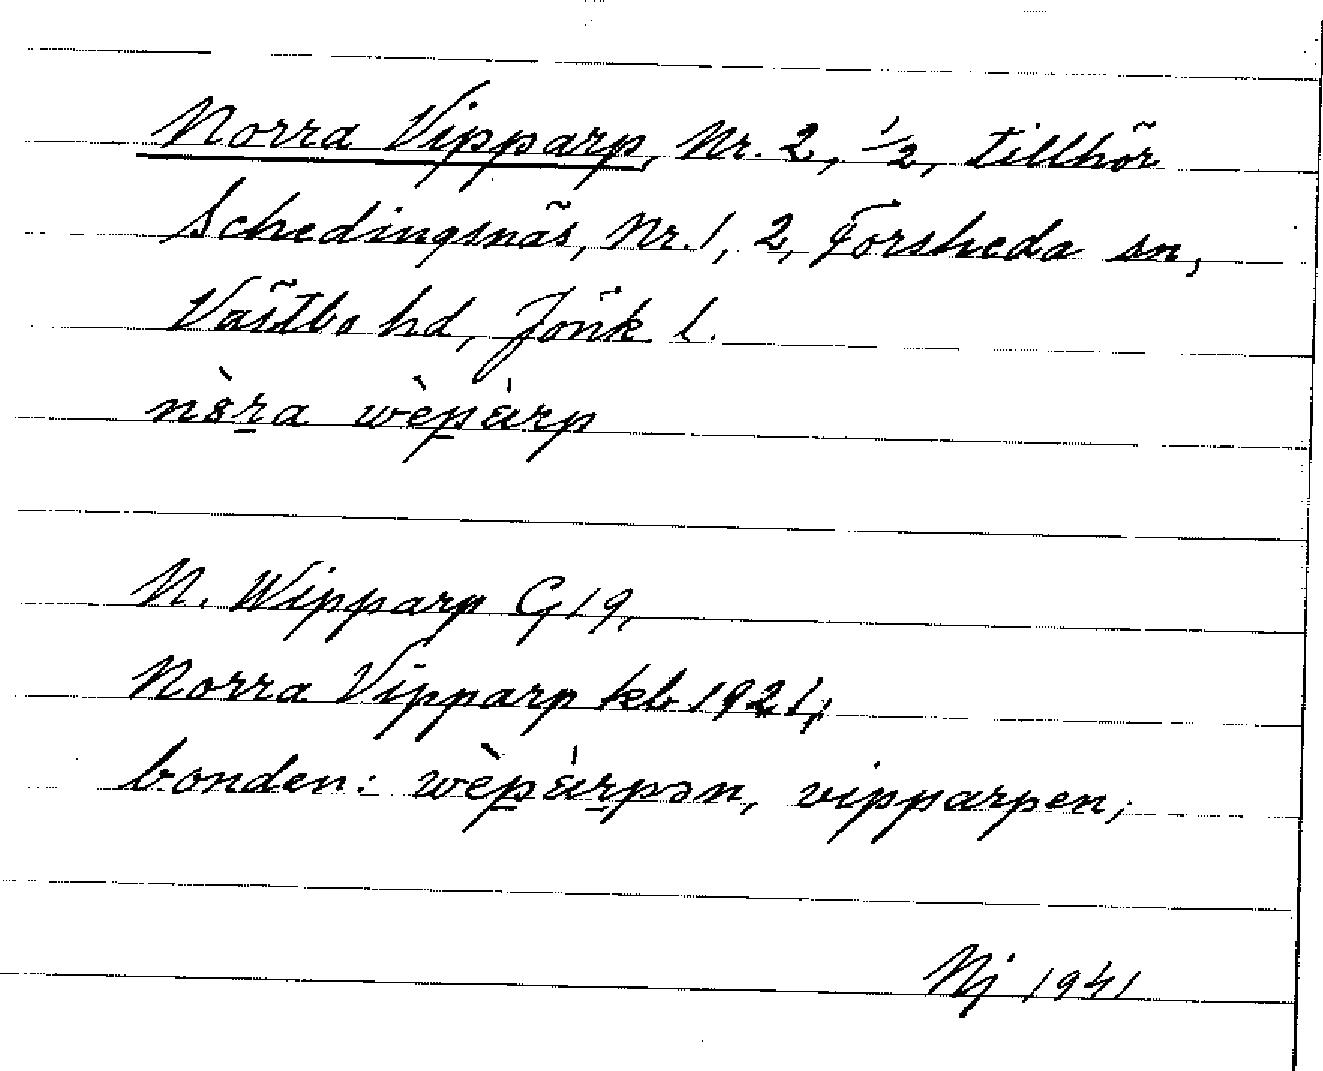 Norra Vipparp, Nr. 2, 1/2, tillhör
Schedingsnäs, Nr. 1, 2, Forsheda sn,
Västbo hd, Jönk l.
nòra wèpárp
N. Wipparp GJ 9,
Norra Vipparp kb 1921,
bonden: wèpárpən, vipparpen,
Nj 1941